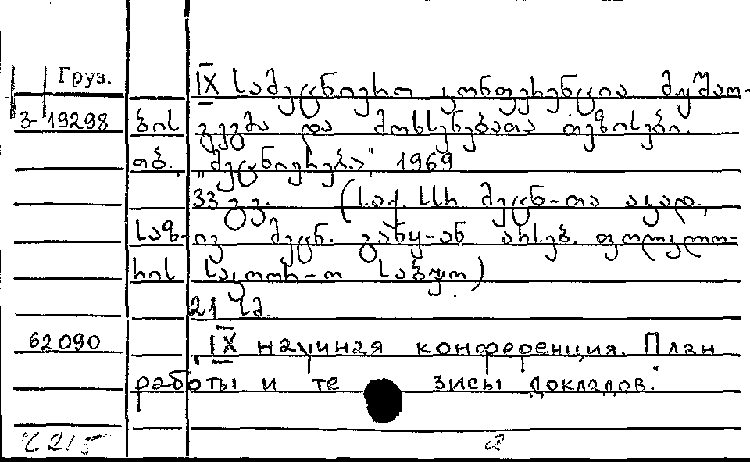 Груз.
IX სამეცნიერო კონფერენცია მუშაო-
3-19298 ბის გეგმა და მოხსენებათა თეზისები.
თბ., „მეცნიერება", 1969
33 გვ. (საქ. სსრ მეცნ-თა აკად.
საზ-ივ მეცნ. განყ-ან არსებ. ფოლკლო-
რის საკოორ-ო საბჭო)
21 სმ.
62090 „IX научная конференция. План
работы и те зисы докладов."
2